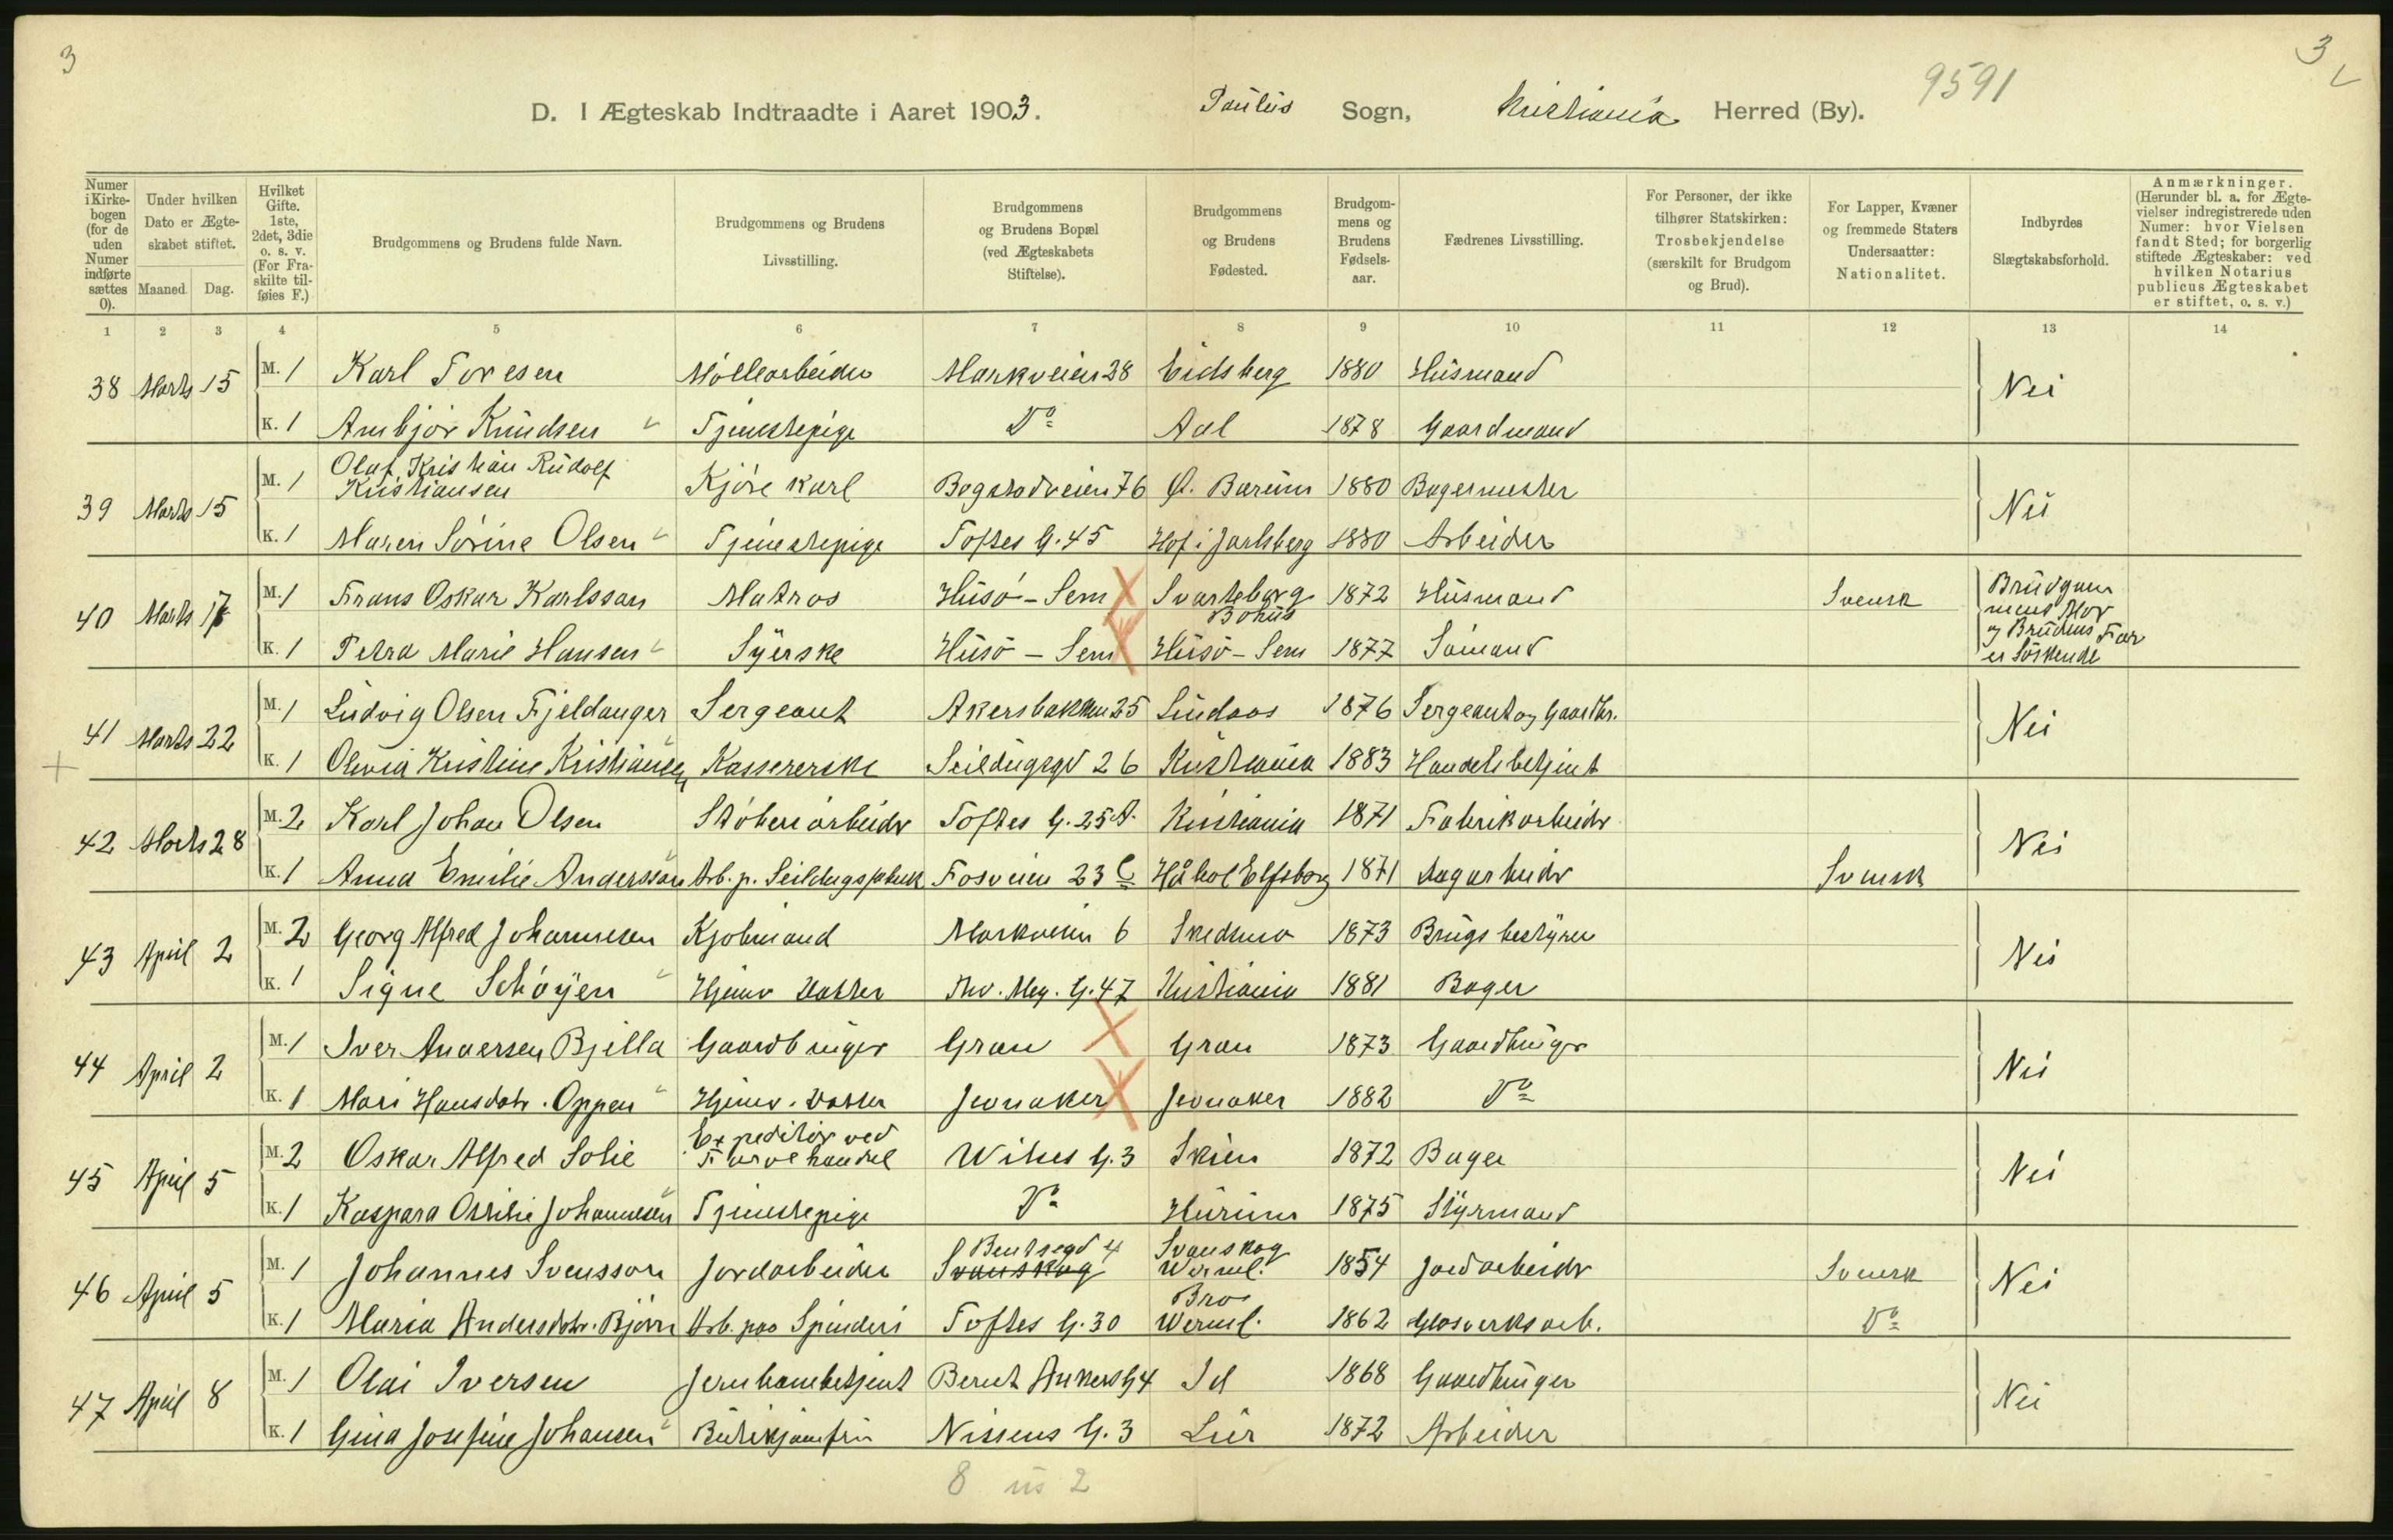 3
3
9591
D. I Ægteskab Indtraadte i Aaret 1903. Paulus Sogn, Kristiania Herred (By).
Numer i Kirke-bogen (for de uden Numer indførte sættes 0).
Under hvilken Dato er Ægte-skabet stiftet.
Maaned. Dag.
Hvilket Gifte. 1ste, 2det, 3die o. s. v. (For Fra-skilte til-føies F.)
Brudgommens og Brudens fulde Navn.
Brudgommens og Brudens Livsstilling.
Brudgommens og Brudens Bopæl (ved Ægteskabets Stiftelse).
Brudgommens og Brudens Fødested.
Brudgom-mens og Brudens Fødsels-aar.
Fædrenes Livsstilling.
For Personer, der ikke tilhører Statskirken: Trosbekjendelse (særskilt for Brudgom og Brud).
For Lapper, Kvæner og fremmede Staters Undersaatter: Nationalitet.
Indbyrdes Slægtskabsforhold.
Anmærkninger. (Herunder bl. a. for Ægte-vielser indregistrerede uden Numer: hvor Vielsen fandt Sted; for borgerlig stiftede Ægteskaber: ved hvilken Notarius publicus Ægteskabet er stiftet, o. s. v.)
1 2 3 4 5 6 7 8 9 10 11 12 13 14
38 Marts 15 M. 1 Karl Toresen Møllearbeider Markveien 28 Eidsberg 1880 Husmand Nei
K. 1 Ambjør Knudsen Tjenestepige Do Aal 1878 Gaardmand
39 Marts 15 M. 1 Olaf Kristian Rudolf Kristiansen Kjørekarl Bogstadveien 76 Ø. Bærum 1880 Bagermester Nei
K. 1 Maren Sørine Olsen Tjenestepige Toftes G. 45 Hof i Jarlsberg 1880 Arbeider
40 Marts 17 M. 1 Frans Oskar Karlsson Matros Husø - Sem Svarteborg Bohus 1872 Husmand Svensk Brudgom mens Mor og Brudens Far er Søskende
K. 1 Petra Marie Hansen Syerske Husø - Sem Husø - Sem 1877 Sømand
41 Marts 22 M. 1 Ludvig Olsen Fjeldanger Sergeant Akersbakken 25 Lindaas 1876 Sergeant og Gaardbr. Nei
K. 1 Olivia Kristine Kristiansen Kassererske Seildugsgd 26 Kristiania 1883 Handelsbetjent
42 Marts 28 M. 2 Karl Johan Olsen Støberiarbeider Toftes G. 25 A. Kristiania 1871 Fabrikarbeider Nei
K. 1 Anna Emilie Andersson Arb. p. Seildugsfabrik Fosveien 23 C Håbol Elfsborg 1871 Dagarbeider Svensk
43 April 2 M. 2 Georg Alfred Johannesen Kjøbmand Markveien 6 Skedsmo 1873 Brugsbestyrer Nei
K. 1 Signe Schøyen Hjemv. Datter Thv. Mey. G. 47 Kristiania 1881 Bager
44 April 2 M. 1 Iver Andersen Bjella Gaardbruger Gran Gran 1873 Gaardbruger Nei
K. 1 Mari Hansdatr. Oppen Hjemv. Datter Jevnaker Jevnaker 1882 Do
45 April 5 M. 2 Oskar Alfred Solie Expeditør ved Farvehandel Wilses G. 3 Skien 1872 Bager Nei
K. 1 Kaspara Ottilie Johannesen Tjenestepige Do Hurum 1875 Styrmand
46 April 5 M. 1 Johannes Svensson Jordarbeider Bentsegd 4 Svanskog Svanskog Werml. 1854 Jordarbeider Svensk Nei
K. 1 Maria Andersdotr. Bjørn Arb. paa Spinderi Toftes G. 30 Bro Werml. 1862 Glasverksarb. Do
47 April 8 M. 1 Olai Iversen Jernbanebetjent Bernt Ankers G 4 Id 1868 Gaardbruger Nei
K. 1 Gina Josefine Johansen Butikjomfru Nissens G. 3 Lier 1872 Arbeider
8 us 2